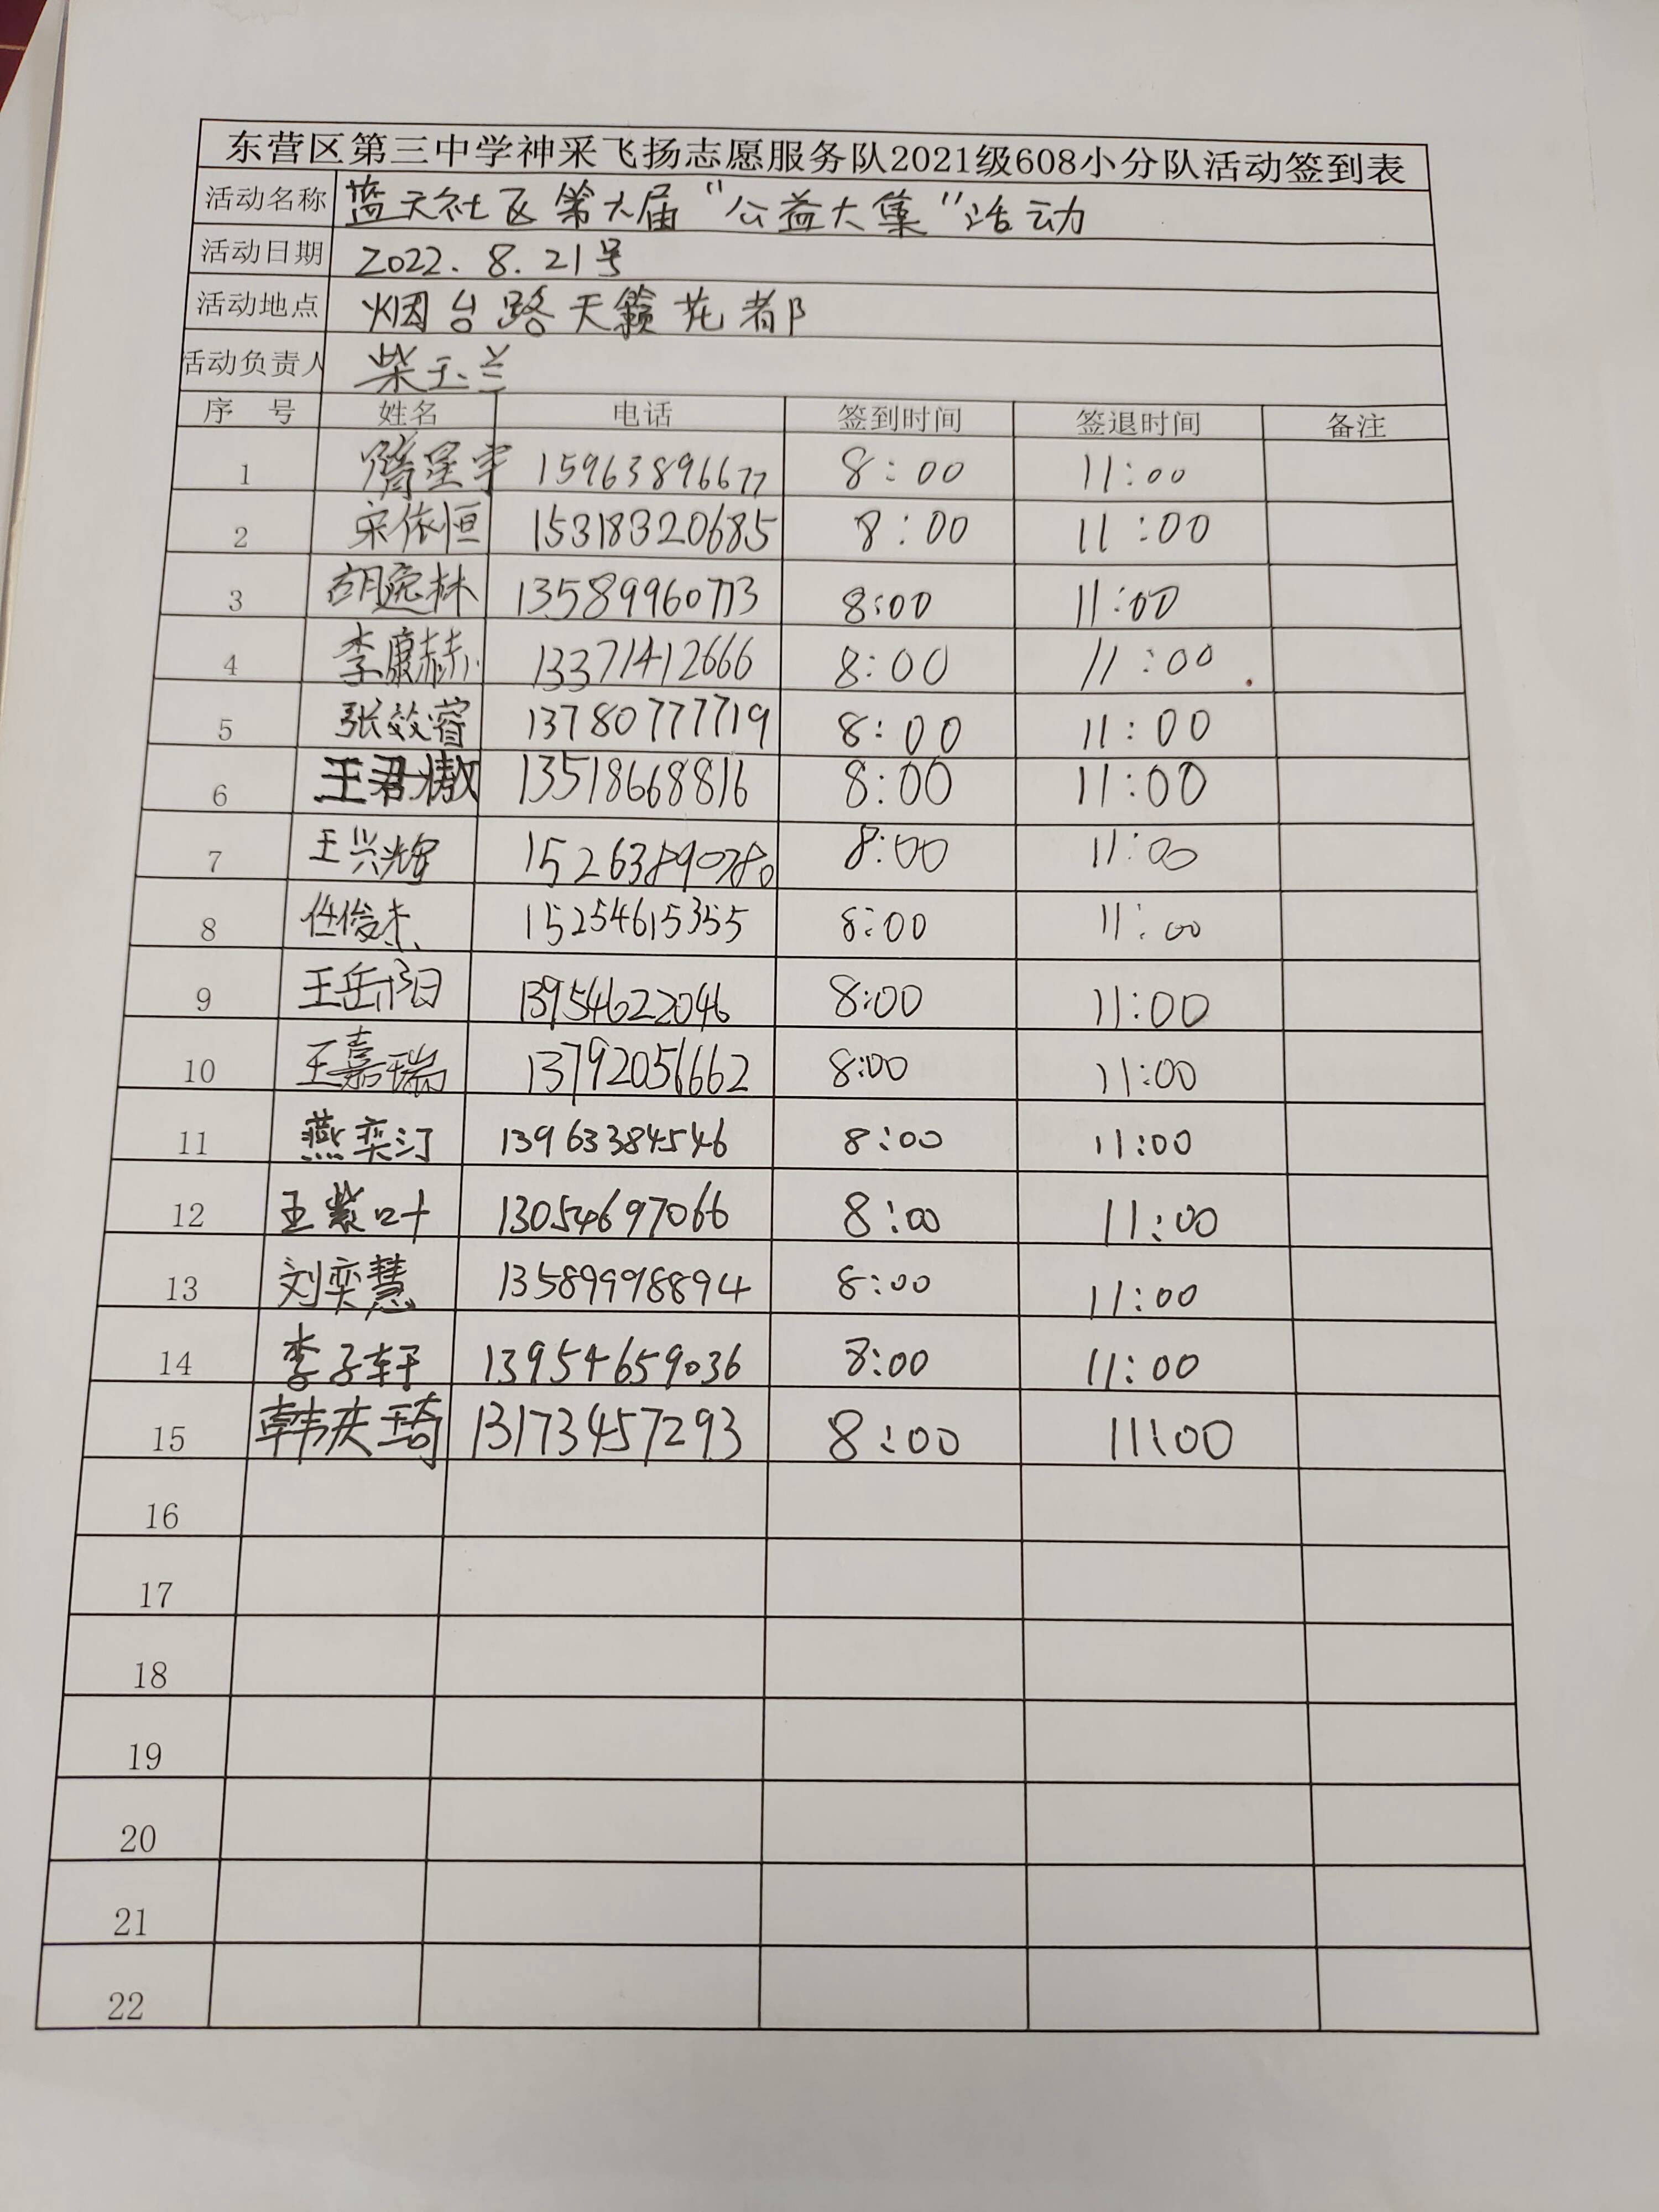 东营区第三中学神采飞扬志愿服务队2021级608小分队活动签到表
活动名称 蓝天社区第六届“公益大集”活动
活动日期 2022.8.21号
活动地点 烟台路天籁花都
活动负责人 柴玉兰
序号 姓名 电话 签到时间 签退时间 备注
1 隋星宇 15963896677 8:00 11:00
2 宋依恒 15318320685 8:00 11:00
3 胡逸林 13589960713 8:00 11:00
4 李康赫 13371412666 8:00 11:00
5 张效睿 13780777719 8:00 11:00
6 王君傲 13518668816 8:00 11:00
7 王兴辉 15263890780 8:00 11:00
8 任俊杰 15254615355 8:00 11:00
9 王岳阳 13954622046 8:00 11:00
10 王嘉瑞 13792056662 8:00 11:00
11 燕奕汀 13963384546 8:00 11:00
12 王紫叶 13054697066 8:00 11:00
13 刘奕慧 13589998894 8:00 11:00
14 李子轩 13954659036 8:00 11:00
15 韩庆琦 13173457293 8:00 11:00
16
17
18
19
20
21
22